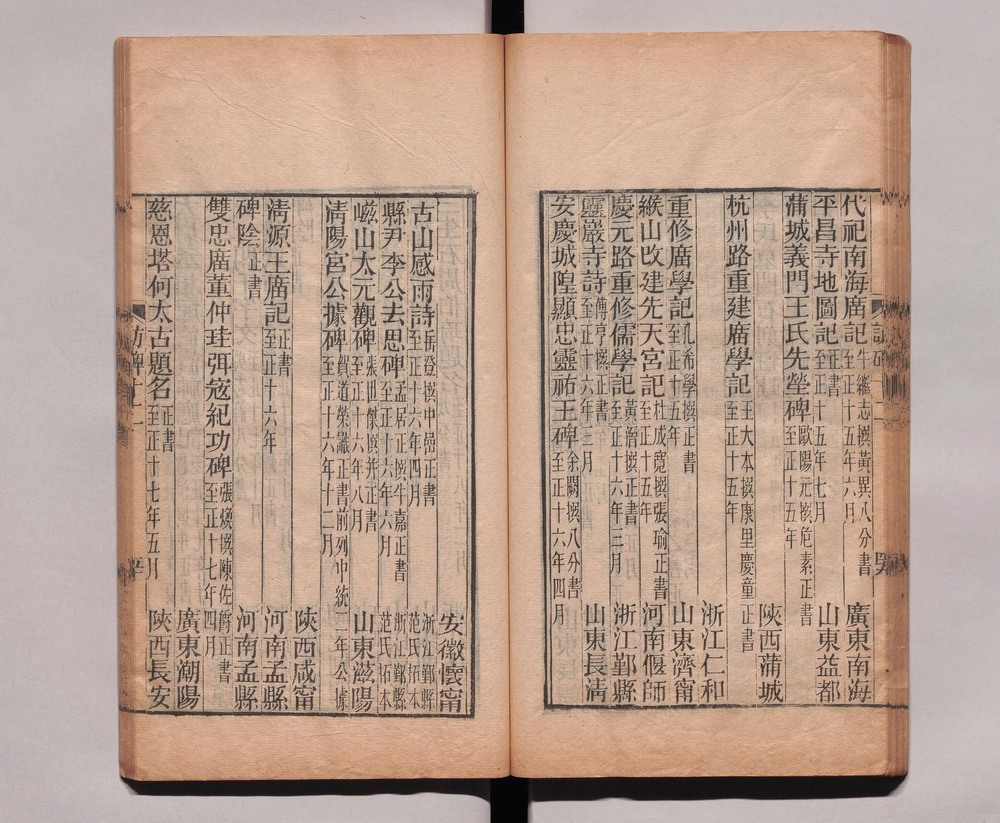 代祀南海廟記 牛繼志撰黃異八分書 至正十五年六月 廣東南海
平昌寺地圖記 正書 至正十五年七月 山東益都
蒲城義門王氏先塋碑 歐陽元撰危素正書 至正十五年
陝西蒲城
杭州路重建廟學記 王大本撰康里慶童正書 至正十五年
浙江仁和
重修廟學記 孔希學撰正書 至正十五年 山東濟甯
緱山改建先天宮記 杜成寬撰張瑜正書 至正十五年 河南偃師
慶元路重修儒學記 黃溍撰正書 至正十六年三月 浙江鄞縣
靈巖寺詩 傅亨撰正書 至正十六年三月 山東長淸
安慶城隍顯忠靈祐王碑 余闕撰八分書 至正十六年四月
安徽懷甯
古山感雨詩 岳登撰中嵒正書 至正十六年四月 浙江鄞縣 范氏拓本
縣尹李公去思碑 孟居正撰牛嘉正書 至正十六年六月 浙江鄞縣 范氏拓本
嵫山太元觀碑 張世傑撰并正書 至正十六年八月 山東滋陽
淸陽宮公據碑 賀道榮讖正書前列中統二年公據 至正十六年十二月
陝西咸甯
淸源王廟記 正書 至正十六年 河南孟縣
碑陰 正書 河南孟縣
雙忠廟董仲珪弭寇紀功碑 張燠撰陳佐爵正書 至正十七年四月
廣東潮陽
慈恩塔何太古題名 正書 至正十七年五月 陝西長安
訪碑十二